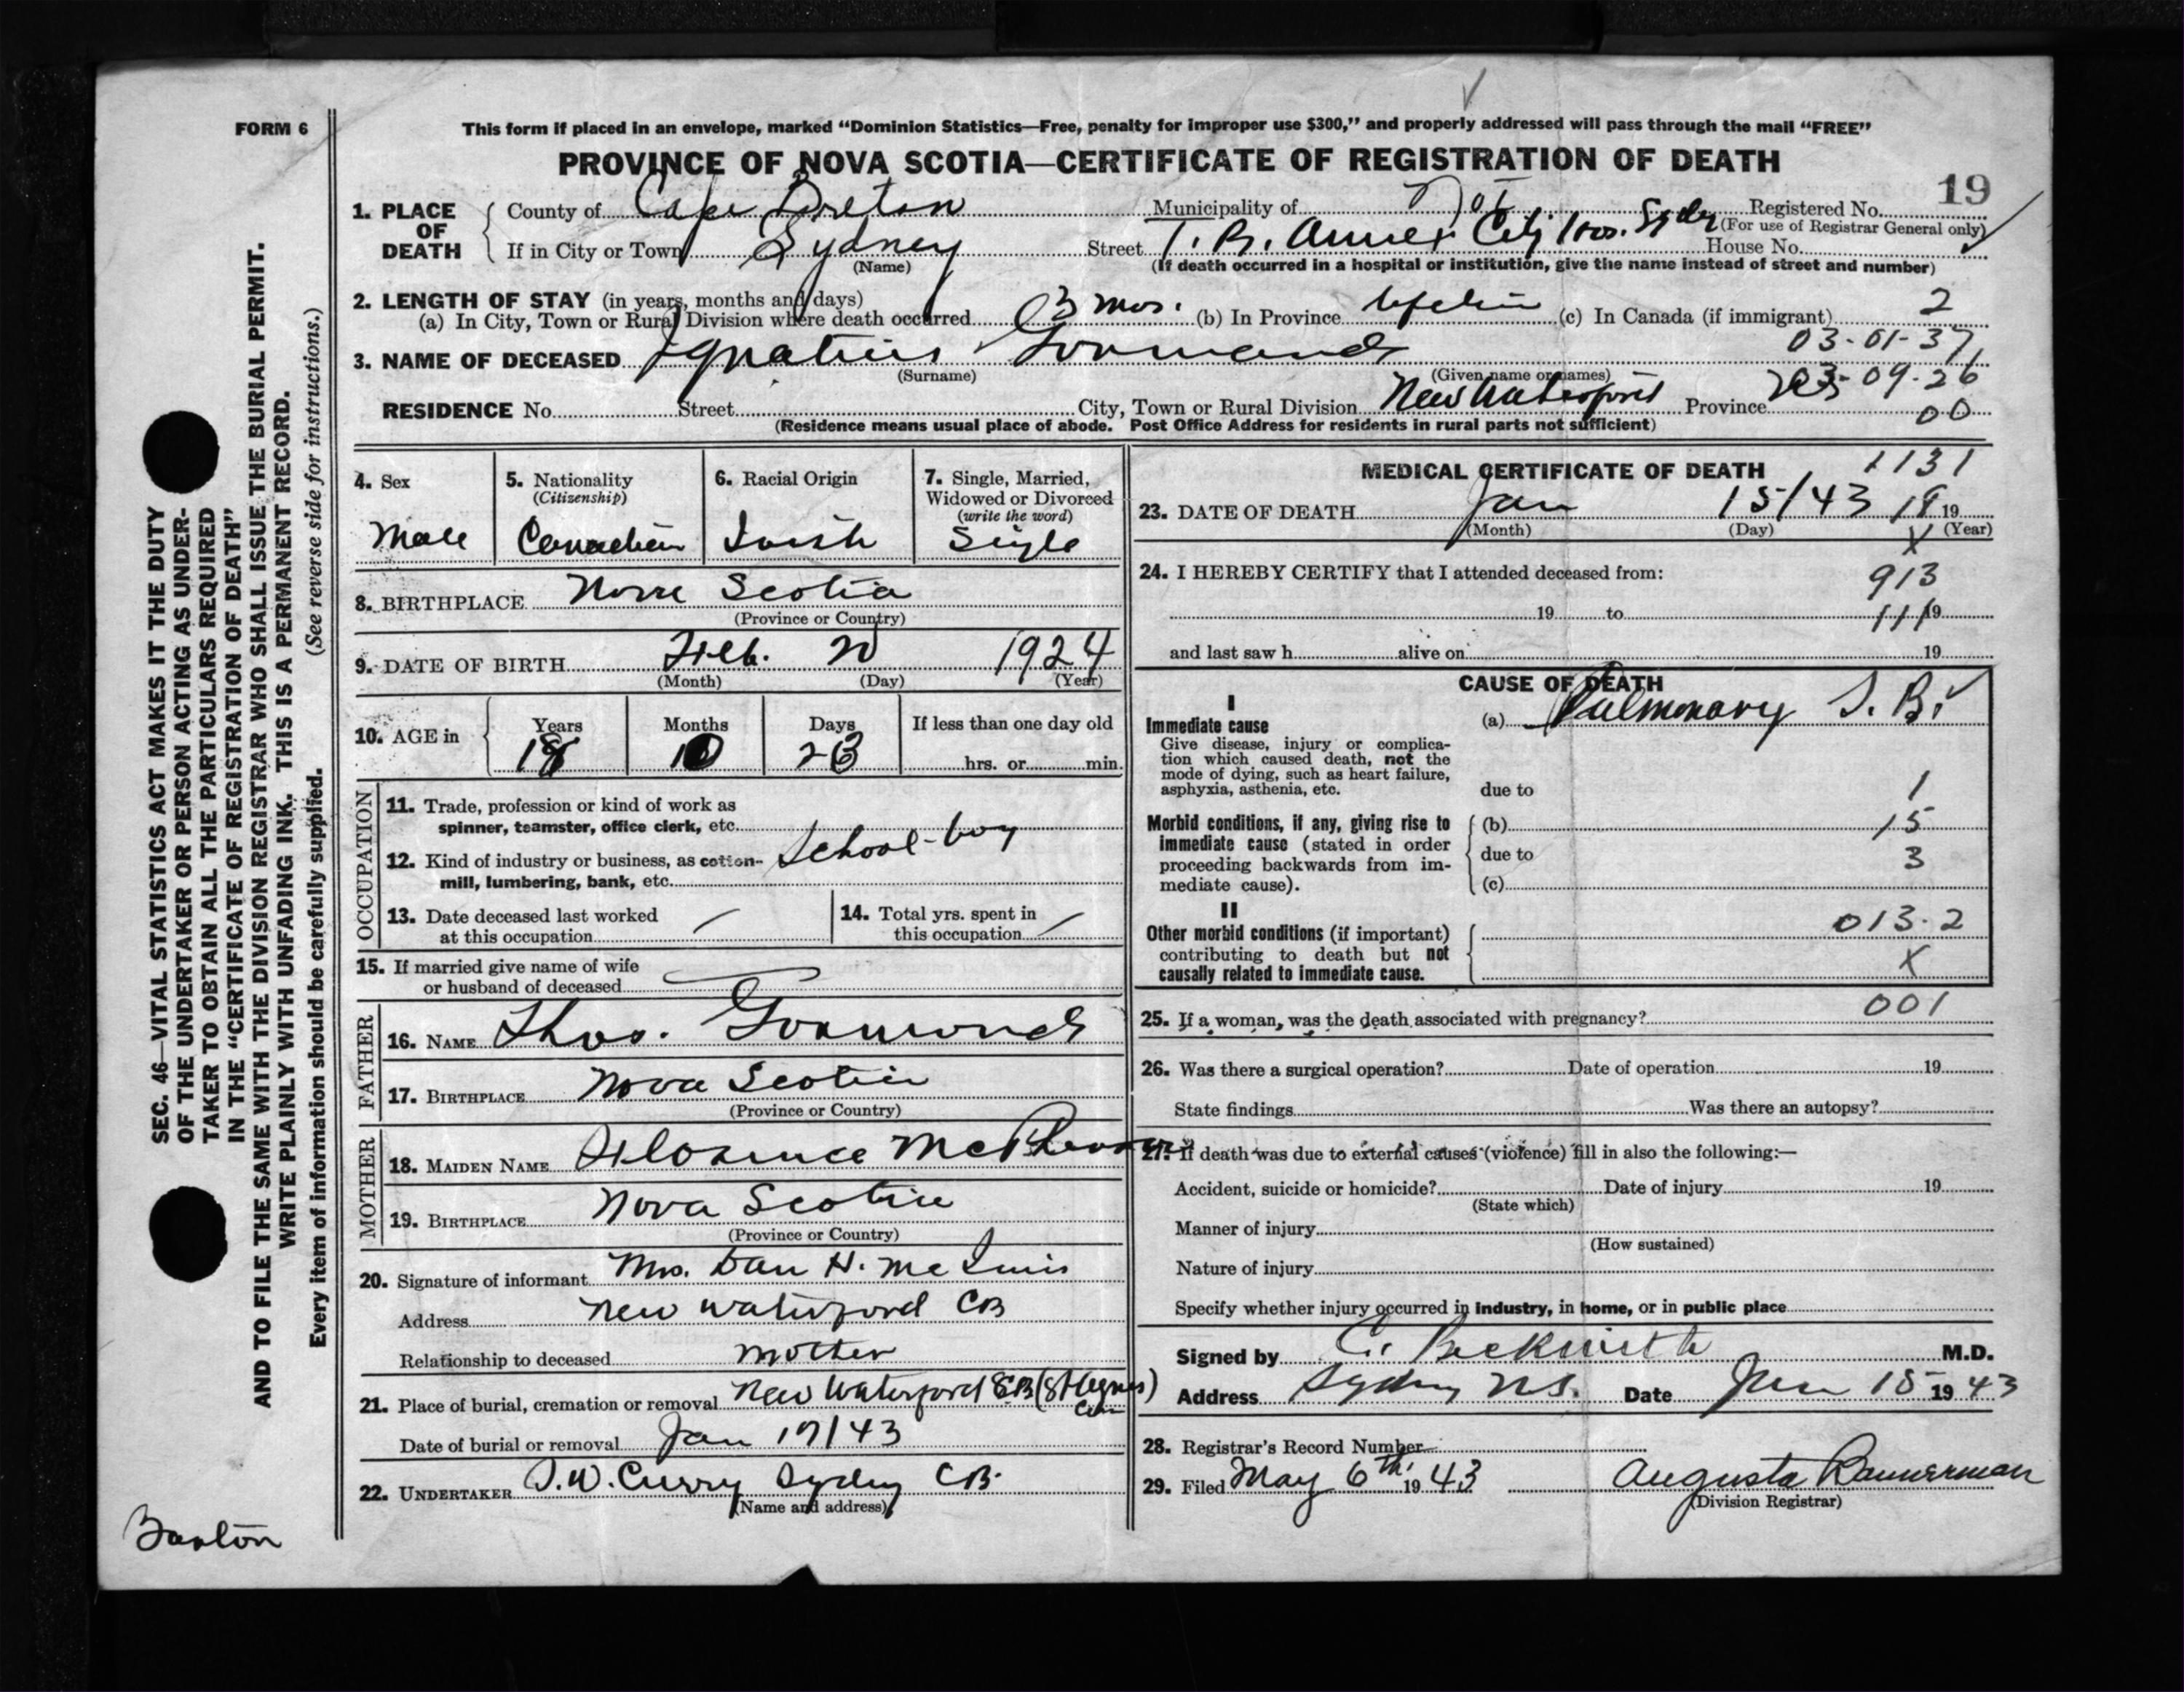 FORM 6
This form if placed in an envelope, marked “Dominion Statistics—Free, penalty for improper use $300,” and properly addressed will pass through the mail “FREE”
PROVINCE OF NOVA SCOTIA—CERTIFICATE OF REGISTRATION OF DEATH
19
1. PLACE OF DEATH
County of Cape Breton Municipality of Registered No.
(For use of Registrar General only)
If in City or Town Sydney Street T. B. Annex City Hos. Syd House No.
(Name) (If death occurred in a hospital or institution, give the name instead of street and number)
2. LENGTH OF STAY (in years, months and days)
(a) In City, Town or Rural Division where death occurred 3 mos. (b) In Province Lifetime (c) In Canada (if immigrant) 2
03-01-37
3. NAME OF DECEASED Ignatius
(Surname) (Given name or names)
03-09-26
RESIDENCE No. Street City, Town or Rural Division New Waterford Province 00
(Residence means usual place of abode. Post Office Address for residents in rural parts not sufficient)
4. Sex
Male
5. Nationality
(Citizenship)
Canadian
6. Racial Origin
Irish
7. Single, Married,
Widowed or Divorced
(write the word)
Single
8. BIRTHPLACE Nova Scotia
(Province or Country)
9. DATE OF BIRTH Feb. 20 1924
(Month) (Day) (Year)
10. AGE in
Years Months Days If less than one day old
18 10 23 hrs. or min.
OCCUPATION
11. Trade, profession or kind of work as
spinner, teamster, office clerk, etc.
School-boy
12. Kind of industry or business, as cotton-
mill, lumbering, bank, etc.
13. Date deceased last worked
at this occupation —
14. Total yrs. spent in
this occupation —
15. If married give name of wife
or husband of deceased
FATHER
16. NAME Thos.
17. BIRTHPLACE Nova Scotia
(Province or Country)
MOTHER
18. MAIDEN NAME Florence
19. BIRTHPLACE Nova Scotia
(Province or Country)
20. Signature of informant Mrs. Dan H. McInnis
Address New Waterford CB
Relationship to deceased Mother
21. Place of burial, cremation or removal New Waterford CB (St Agnes)
Cem
Date of burial or removal Jan 17/43
22. UNDERTAKER T. W. Curry Sydney CB.
(Name and address)
MEDICAL CERTIFICATE OF DEATH 1131
23. DATE OF DEATH Jan 15/43 18 19
(Month) (Day) (Year)
X
24. I HEREBY CERTIFY that I attended deceased from:
913
19 to 111 19
and last saw h alive on 19
CAUSE OF DEATH
I
Immediate cause
Give disease, injury or complica-
tion which caused death, not the
mode of dying, such as heart failure,
asphyxia, asthenia, etc.
(a) Pulmonary T. B.
due to 1
Morbid conditions, if any, giving rise to
immediate cause (stated in order
proceeding backwards from im-
mediate cause).
(b) 15
due to 3
(c)
II
Other morbid conditions (if important)
contributing to death but not
causally related to immediate cause.
013.2
X
001
25. If a woman, was the death associated with pregnancy?
26. Was there a surgical operation? Date of operation 19
State findings Was there an autopsy?
27. If death was due to external causes (violence) fill in also the following:—
Accident, suicide or homicide? Date of injury 19
(State which)
Manner of injury
(How sustained)
Nature of injury
Specify whether injury occurred in industry, in home, or in public place
Signed by C. Beckwith M.D.
Address Sydney N.S. Date Jan 15 1943
28. Registrar's Record Number
29. Filed May 6th, 1943 Augusta Bannerman
(Division Registrar)
SEC. 46—VITAL STATISTICS ACT MAKES IT THE DUTY
OF THE UNDERTAKER OR PERSON ACTING AS UNDER-
TAKER TO OBTAIN ALL THE PARTICULARS REQUIRED
IN THE “CERTIFICATE OF REGISTRATION OF DEATH”
AND TO FILE THE SAME WITH THE DIVISION REGISTRAR WHO SHALL ISSUE THE BURIAL PERMIT.
WRITE PLAINLY WITH UNFADING INK. THIS IS A PERMANENT RECORD.
Every item of information should be carefully supplied. (See reverse side for instructions.)